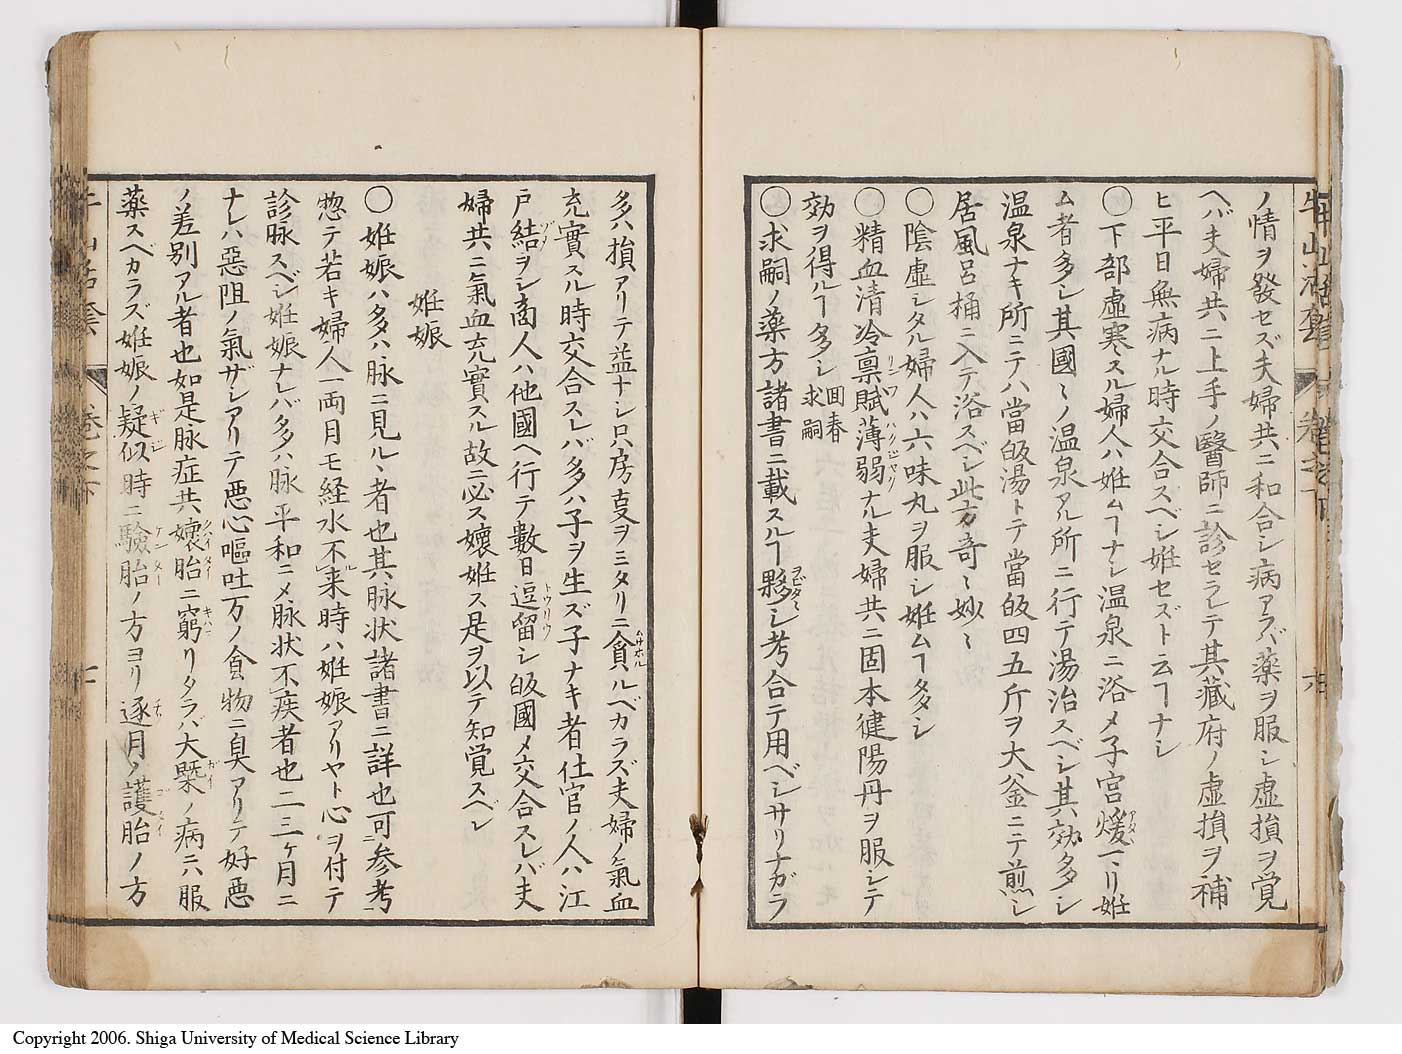 ノ情ヲ發セズ夫婦共ニ和合シ病アラバ藥ヲ服シ虚損ヲ覚
ヘバ夫婦共ニ上手ノ醫師ニ診セラレテ其藏府ノ虚損ヲ補
ヒ平日無病ナル時交合スベシ姙セズト云ヿナシ
〇下部虚寒スル婦人ハ姙ムヿナシ温泉ニ浴メ子宮煖マリ姙
ム者多シ其國〻ノ温泉アル所ニ行テ湯治スベシ其効多シ
温泉ナキ所ニテハ當皈湯トテ當皈四五斤ヲ大釜ニテ煎シ
居風呂桶ニ入テ浴スベシ此方奇〻妙〻
〇陰虚シタル婦人ハ六味丸ヲ服シ姙ムヿ多シ
〇精血清冷禀賦薄弱ナル夫婦共ニ固本健陽丹ヲ服シテ
効ヲ得ルヿ多シ 回春 求嗣
〇求嗣ノ藥方諸書ニ載スルヿ夥シ考合テ用ベシサリナガラ
多ハ損アリテ益ナシ只房叓ヲミタリニ貪ルベカラズ夫婦ノ氣血
充實スル時交合スレバ多ハ子ヲ生ズ子ナキ者仕官ノ人ハ江
戸結ヲシ商人ハ他國ヘ行テ數日逗留シ皈國メ交合スレバ夫
婦共ニ氣血充實スル故ニ必ス懐姙ス是ヲ以テ知覚スベシ
姙娠
〇姙娠ハ多ハ脉ニ見ルヽ者也其脉状諸書ニ詳也可参考
惣テ若キ婦人一両月モ経水不来時ハ姙娠アリヤト心ヲ付テ
診脉スベシ姙娠ナレバ多ハ脉平和ニメ脉状不疾者也二三ヶ月ニ
ナレハ惡阻ノ氣ザシアリテ悪心嘔吐万ノ食物ニ臭アリテ好悪
ノ差別アル者也如是脉症共懐胎ニ窮リタラバ大槩ノ病ニハ服
藥スベカラズ姙娠ノ疑似時ニ驗胎ノ方ヨリ逐月ノ護胎ノ方
Copyright 2006. Shiga University of Medical Science Library